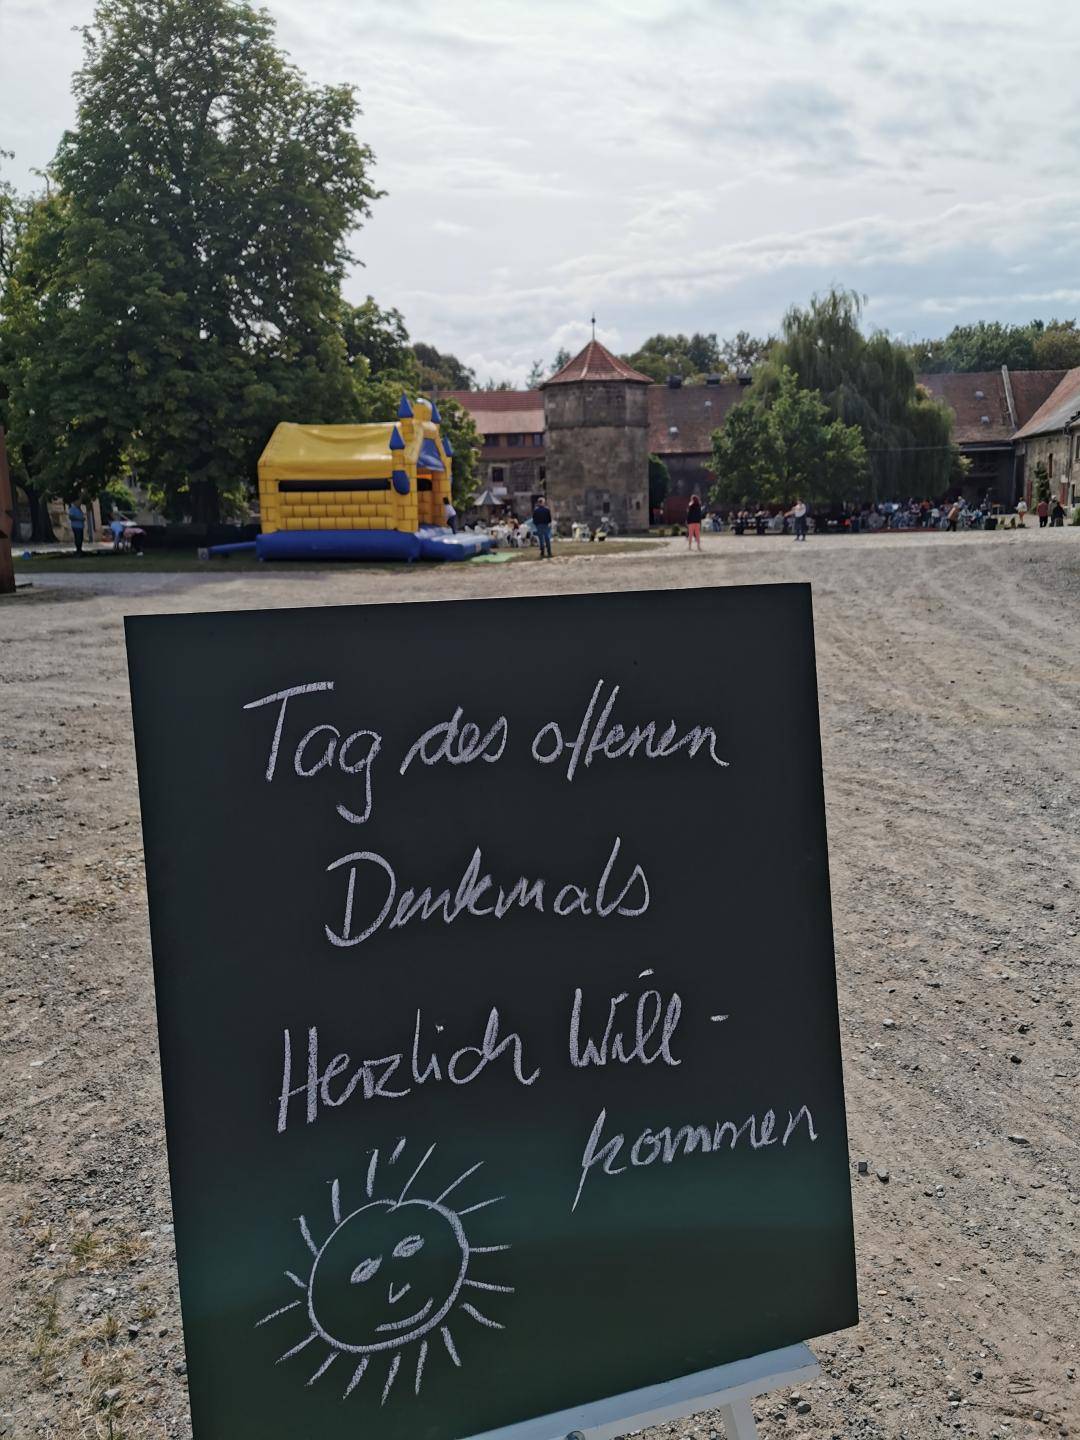 Tag des offenen
Denkmals
Herzlich Will-
kommen